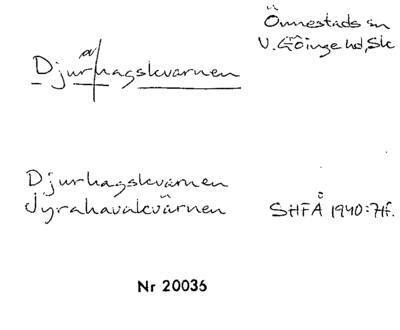 Önnestads sn
V. Göinge hd, Sk
av
Djurhagskvarnen
Djurhagskvarnen
Jyrahavakvärnen
SHFÅ 1940:74f.
Nr 20036